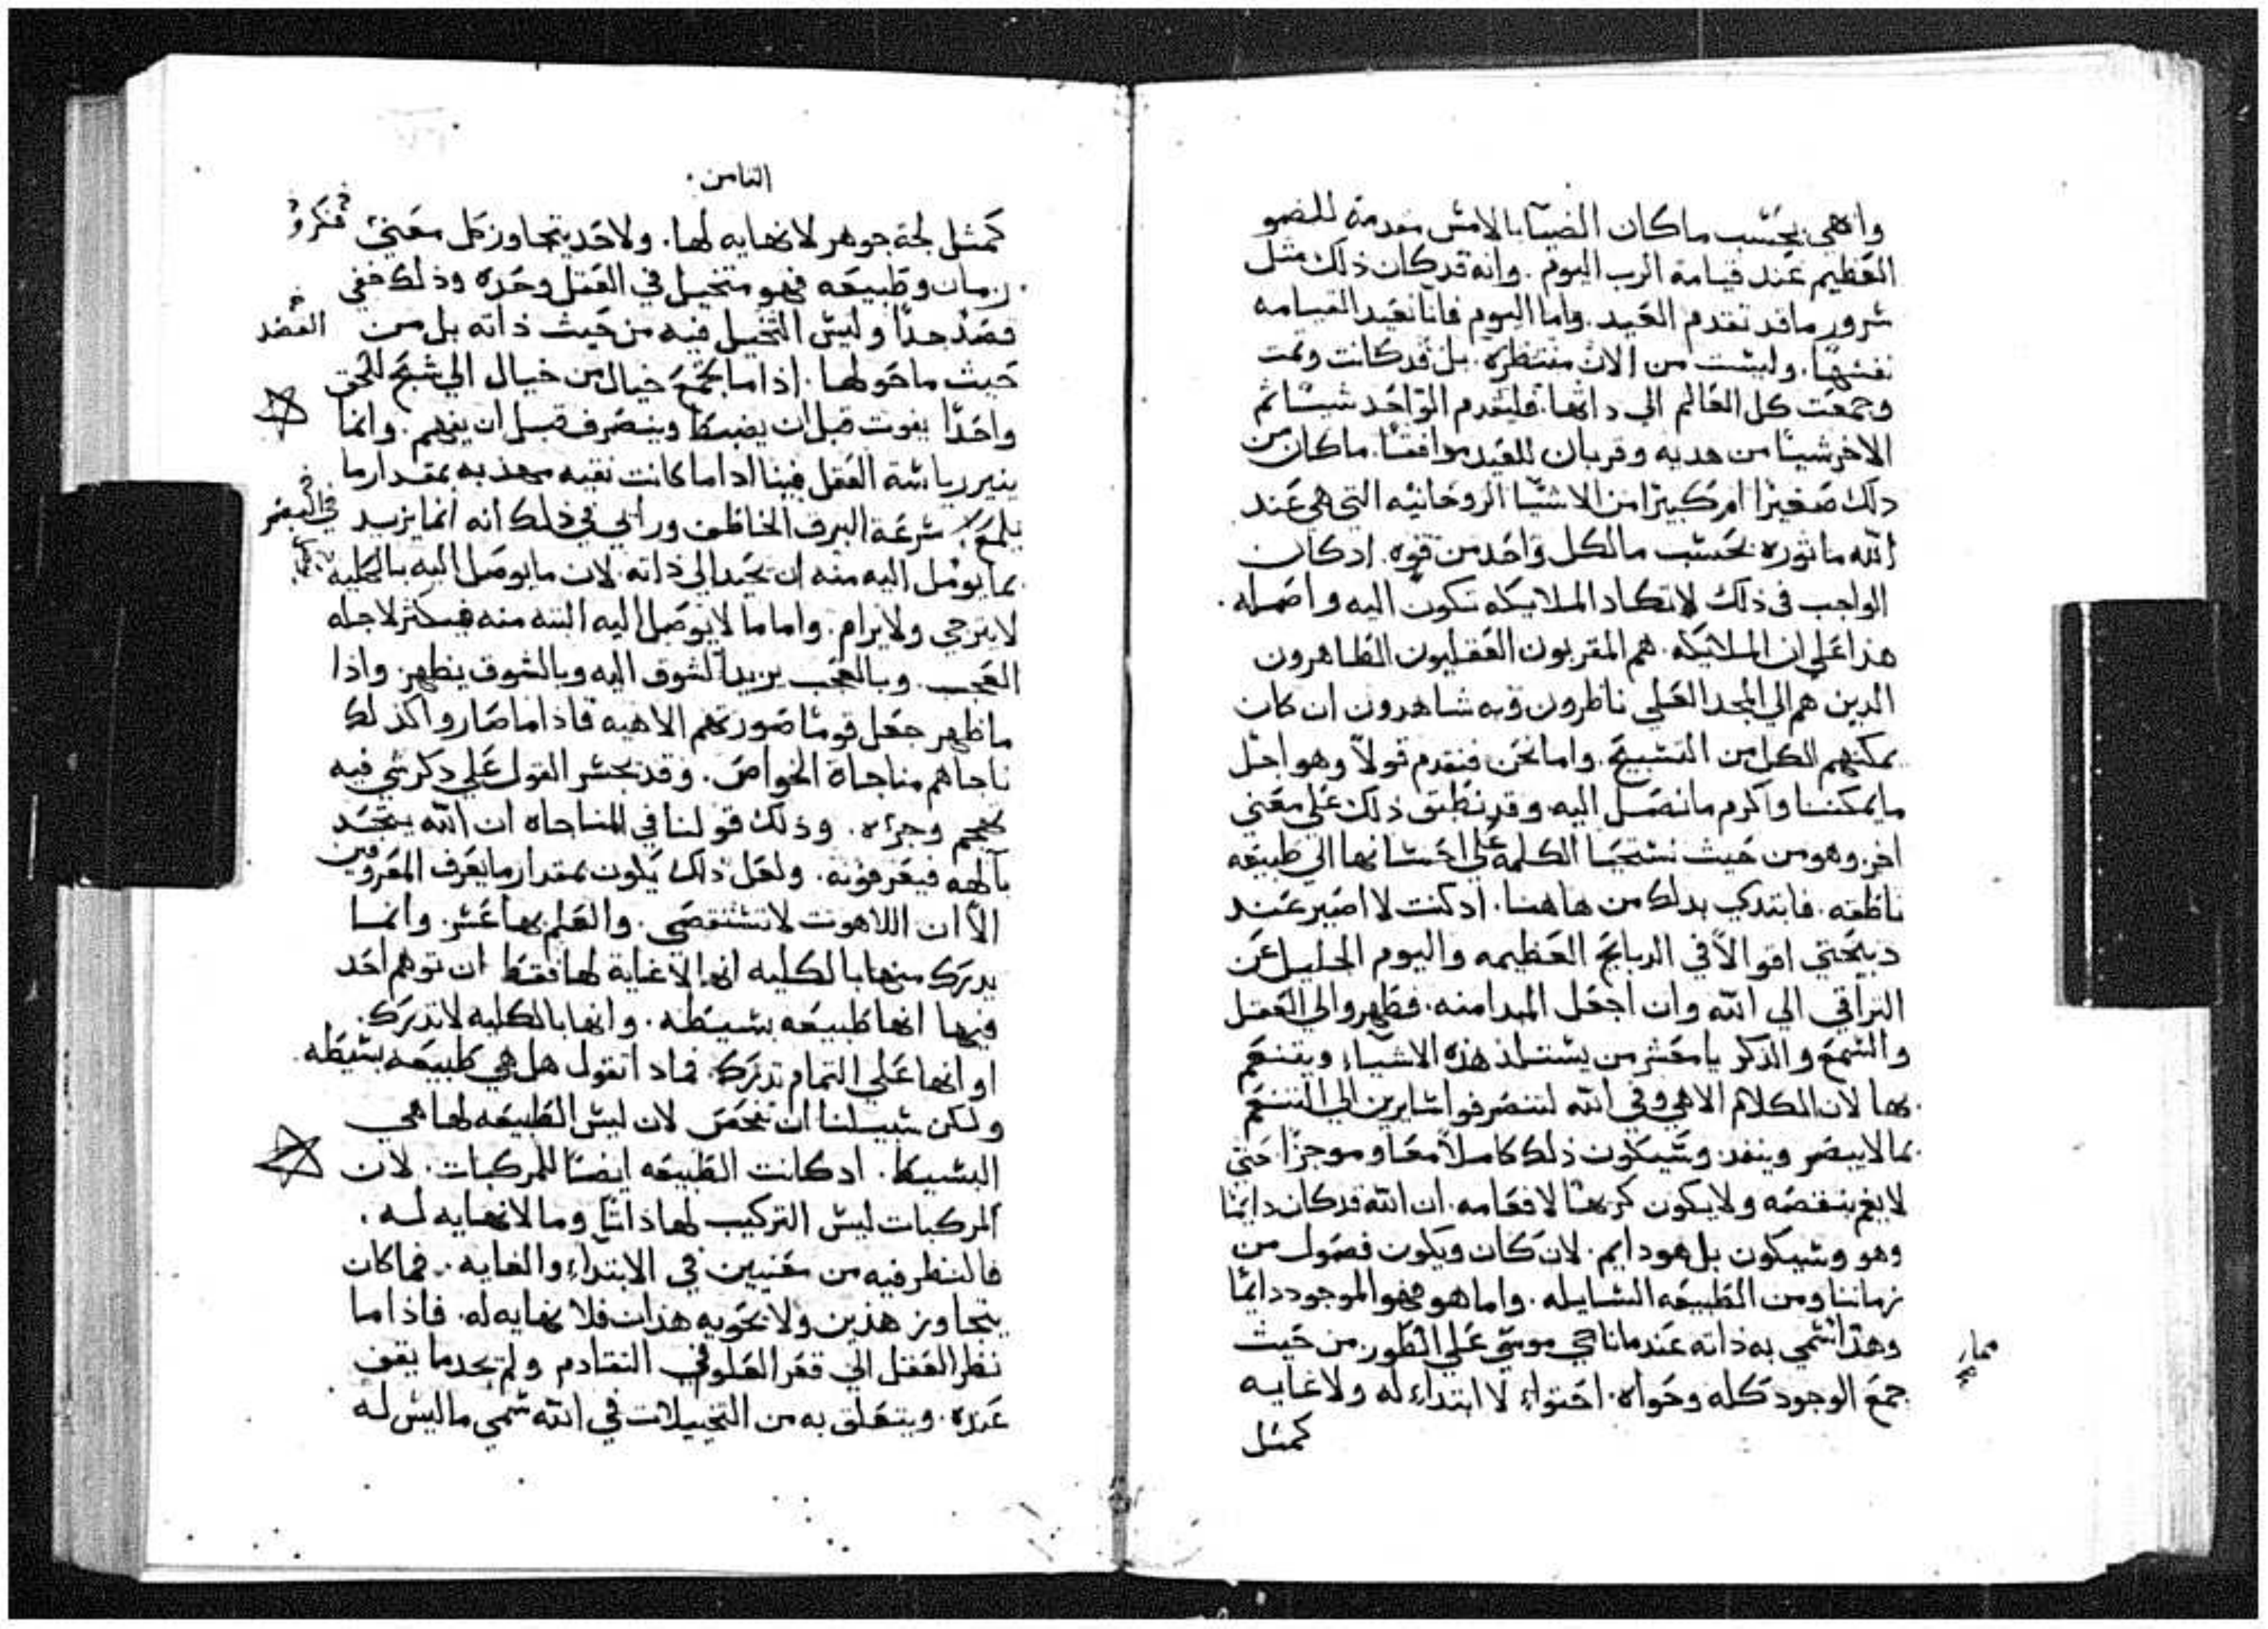 واهي بحسب ماكان الضيا بالامس متقدمة للضو
العظيم عند قيامة الرب اليوم. وانه قد كان ذلك مثل
سرور ما قد تقدم العيد. واما اليوم فانا نعيد القيامه
نفسها. وليست من الان منتظره. بل قد كانت وتمت
وجمعت كل العالم الي داتها. فليقدم الواحد شيئا ثم
الاخر شيئا من هديه وقربان للعيد موافقا. ماكان من
دلك صغيرا ام كبيرا من الاشيا الروحانيه التي هي عند
الله ماثوره بحسب مالكل واحد من قوه. ادكان
الواجب في ذلك لا تكاد الملايكه تكون اليه واصله.
هذا علي ان الملايكه. هم المقربون العقليون الطاهرون
الدين هم الي المجد العلي ناظرون وبه شاهدون ان كان
يمكنهم الكل من التسبيح. واما نحن فنقدم قولا وهو اجل
مايمكننا واكرم مانصل اليه. وقد نطبق ذلك علي معني
اخر. وهو من حيث نسبحنا الكلمه علي احسانها الي طبيعه
ناطقه. فابتدي بدلك من هاهنا. ادكنت لا اصير عند
دبيحتي اقوالا في الدبايح العظيمه واليوم الجليل عن
التراقي الي الله وان اجعل المبدا منه. فطهروا لي العقل
والسمع والذكر يا معشر من يستلذ هذه الاشياء ويتنعم
بها لان الكلام الاهي وفي الله لتنصرفوا سايرين الي التنعم
بما لا يبصر وينفد. وسيكون ذلك كاملا معا وموجزا حتي
لا يغم بنقصه ولا يكون كريها لافقامه. ان الله قد كان دايما
وهو وسيكون بل هو دايم. لان كان ويكون فصول من
زماننا ومن الطبيعه السايله. واما هو فهو الموجود دايما
وهذا سمي به ذاته عند ما ناجي موسي علي الطور. من حيث
جمع الوجود كله وحواه. احتواء لا ابتداء له ولا غايه
كمثل
الثامن.
كمثل لجة جوهر لا نهايه لها. ولا حد يتجاوز كل معني
زمان وطبيعه فهو متخيل في العقل وحده وذلك خفي
قصد جدا وليس التخيل فيه من حيث ذاته بل من
القصد
حيث ماحولها. اذا ما بجمع خيال من خيال الي شبح للحق
واحدا يفوت قبل ان يضبط وينصرف قبل ان يفهم. وانما
ينير رياسة العقل فينا اداما كانت نقيه مهذبه بمقدار ما
يلمع سرعة البرق الخاطف وراي في ذلك انه انما يزيد
في البصر
بما يوصل اليه منه ان يجيد الي ذاته. لان مايوصل اليه بالكليه
لا يترجي ولا يرام. واما ما لا يوصل اليه البته منه فيكثر لاجله
العجب. وبالعجب يزيد الشوق اليه وبالشوق يطهر. واذا
ما طهر جعل قوما صورتهم الاهيه فاذا ما صاروا كذلك
ناجاهم مناجاة الخواص. وقد يجسر القول علي ذكر شي فيه
تهجم وجرءه. وذلك قولنا في المناجاه ان الله يتحد
بالهه فيعرفونه. ولعل ذلك يكون بمقدار مايعرف المعروفين
الا ان اللاهوت لا تستقصي. والعلم بها عسر. وانما
يدرك منها بالكليه انها لا غاية لها فقط ان توهم احد
فيها انها طبيعه بسيطه. وانها بالكليه لا تدرك.
او انها علي التمام تدرك. فماد اتقول هل هي طبيعه بسيطه
ولكن سبيلنا ان نفحص لان ليس الطبيعه لها هي
البسيط. ادكانت الطبيعه ايضا للمركبات. لان
المركبات ليس التركيب لها ذاتا وما لا نهايه له.
فالنظر فيه من معنيين في الابتداء والغايه. فما كان
يتجاوز هذين ولا يحويه هذان فلا نهايه له. فاذا ما
نظر العقل الي قعر العلو في التقادم ولم يجد ما يقف
عنده. ويتعلق به من التخييلات في الله سمي ما ليس له